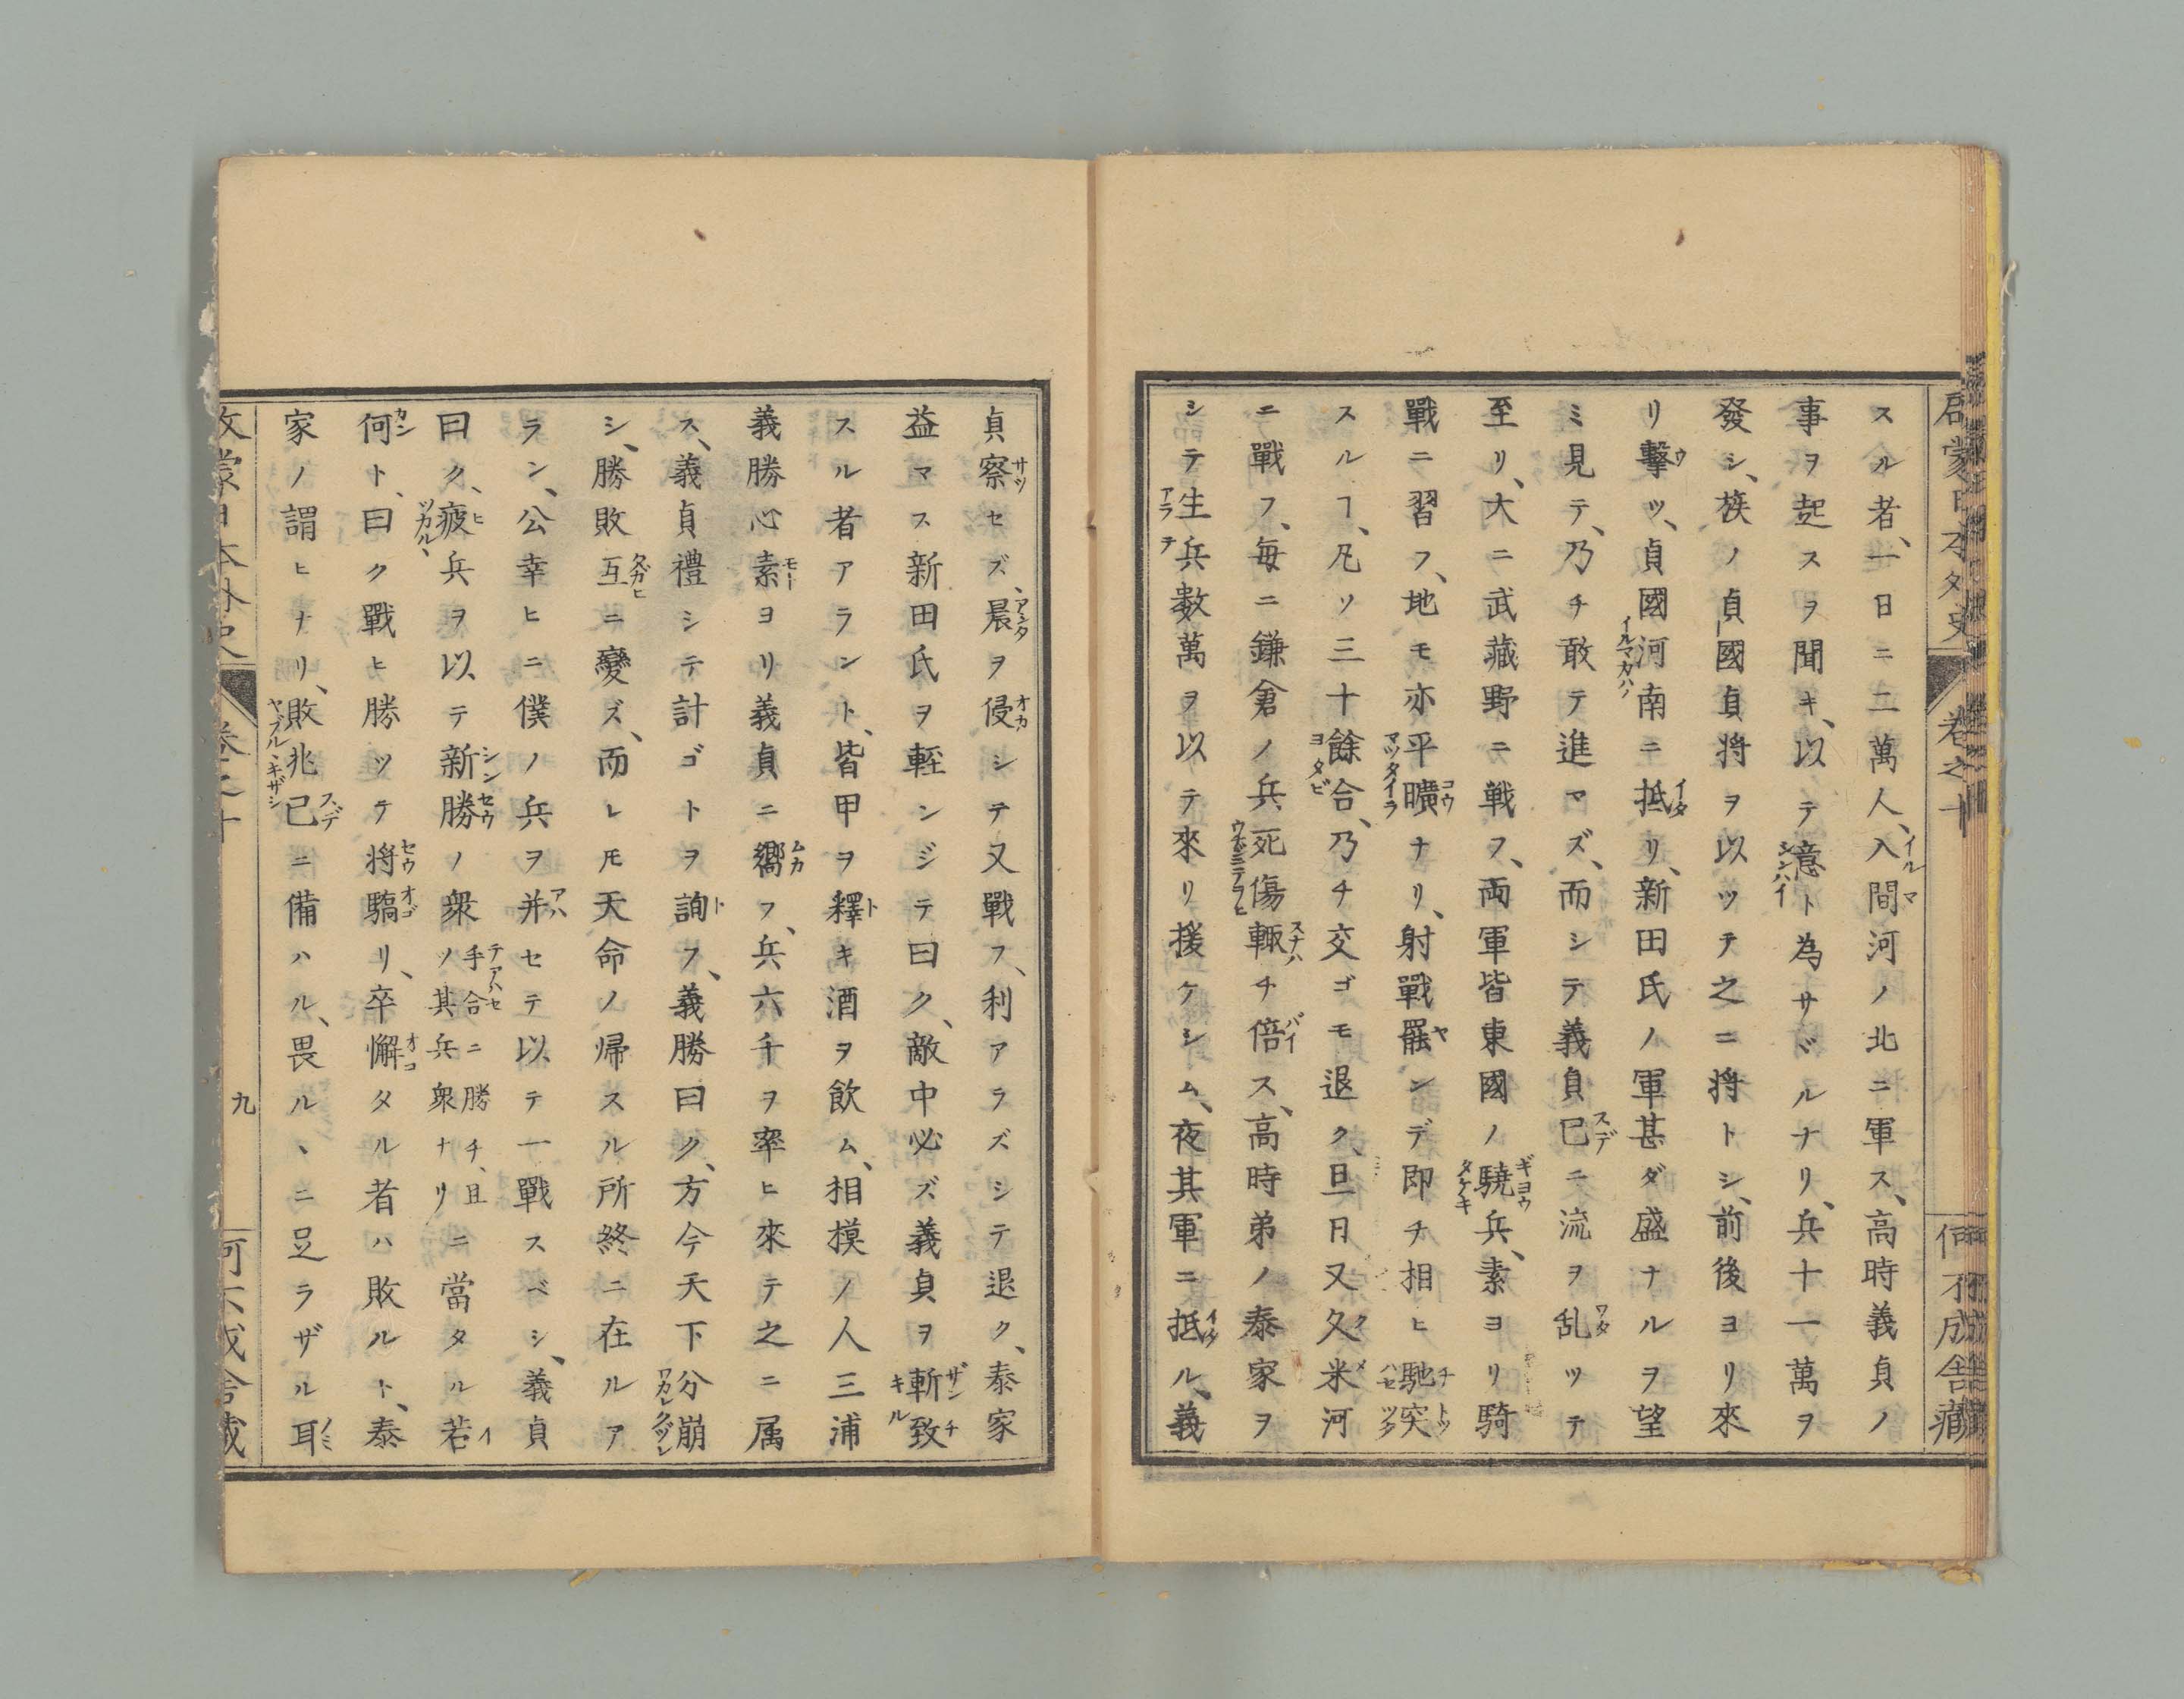 スル者、一日ニ二萬人、入間河ノ北ニ軍ス、高時義貞ノ
事ヲ起スヲ聞キ、以テ意ト為サヾルナリ、兵十一萬ヲ
發シ、族ノ貞國貞将ヲ以ッテ之ニ将トシ、前後ヨリ來
リ撃ツ、貞國河南ニ抵リ、新田氏ノ軍甚ダ盛ナルヲ望
ミ見テ、乃チ敢テ進マズ、而シテ義貞已ニ流ヲ乱ッテ
至リ、大ニ武藏野ニ戦フ、両軍皆東國ノ驍兵、素ヨリ騎
戰ニ習フ、地モ亦平曠ナリ、射戰罷ンデ即チ相ヒ馳突
スルヿ、凡ソ三十餘合、乃チ交ゴモ退ク、旦日又久米河
ニ戰フ、毎ニ鎌倉ノ兵死傷輙チ倍ス、高時弟ノ泰家ヲ
シテ生兵数萬ヲ以テ來リ援ケシム、夜其軍ニ抵ル、義
貞察セズ、晨ヲ侵シテ又戰フ、利アラズシテ退ク、泰家
益マス新田氏ヲ輕ンジテ曰ク、敵中必ズ義貞ヲ斬致
スル者アラント、皆甲ヲ釋キ酒ヲ飲ム、相模ノ人三浦
義勝心素ヨリ義貞ニ嚮フ、兵六千ヲ率ヒ來テ之ニ属
ス、義貞禮シテ計ゴトヲ詢フ、義勝曰ク、方今天下分崩
シ、勝敗互ニ變ズ、而レモ天命ノ帰スル所終ニ在ルア
ラン、公幸ヒニ僕ノ兵ヲ并セテ以テ一戰スベシ、義貞
曰ク、疲兵ヲ以テ新勝ノ衆手合ニ勝チ、且ソノ其兵衆ナリニ當タル若
何ト、曰ク戰ヒ勝ッテ将驕リ、卒懈タル者ハ敗ルト、泰
家ノ謂ヒナリ、敗兆已ニ備ハル、畏ルヽニ足ラザル耳
卷之十
九